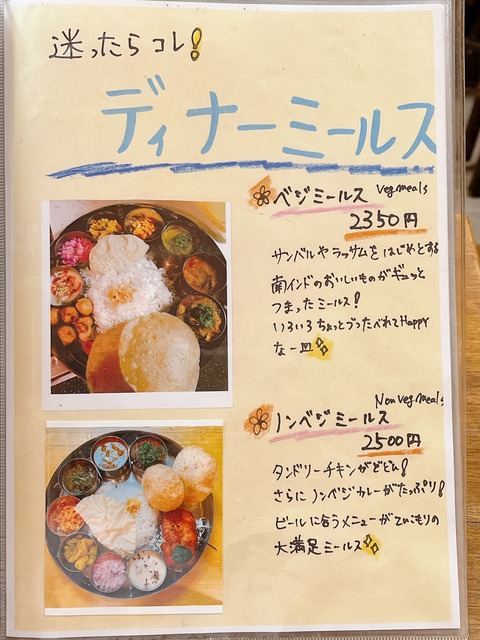 迷ったら コレ!
ディナーミールス
ベジミールス Veg meals
2350円
サンバルや ラッサムを はじめとする
南インドのおいしいものが ギュッと
つまった ミールス!
いろいろ ちょっとづつ たべれて Happy
な 一皿
ノンベジミールス Non veg meals
2500円
タンドリーチキンがどどん!
さらに ノンベジカレーが たっぷり!
ビールに合うメニューが てんこもりの
大満足 ミールス